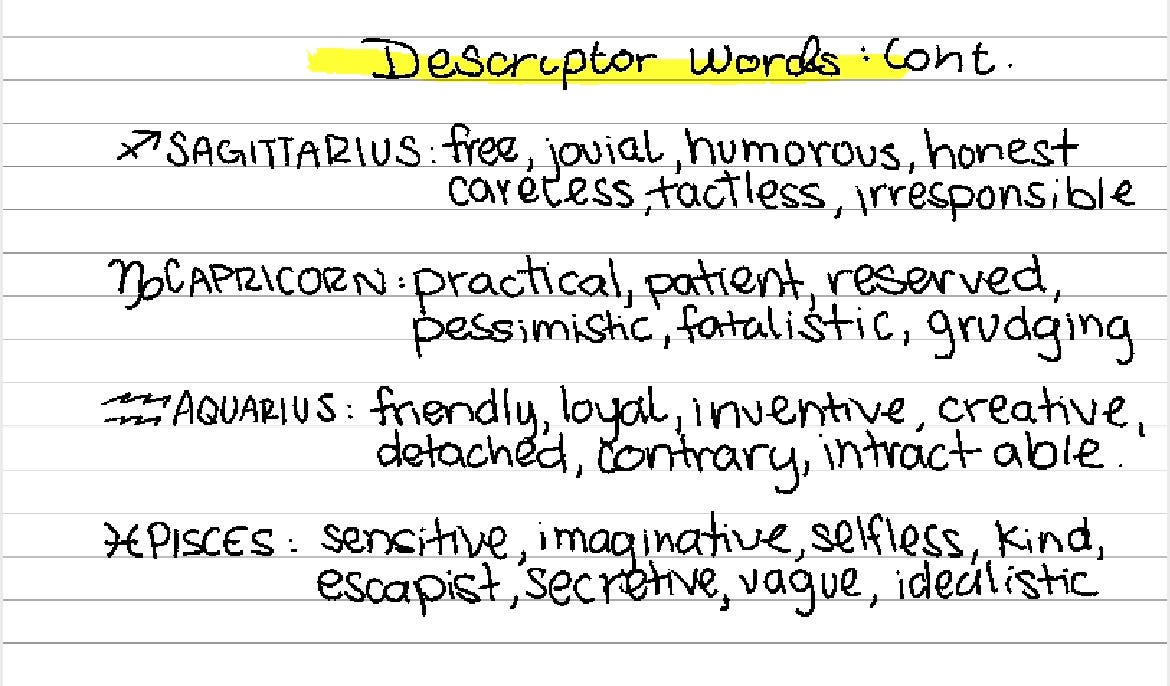 Descriptor Words: Cont.
♐SAGITTARIUS: free, jovial, humorous, honest
careless, tactless, irresponsible
♑CAPRICORN: practical, patient, reserved,
pessimistic, fatalistic, grudging
♒AQUARIUS: friendly, loyal, inventive, creative,
detached, contrary, intractable.
♓PISCES: sensitive, imaginative, selfless, kind,
escapist, secretive, vague, idealistic